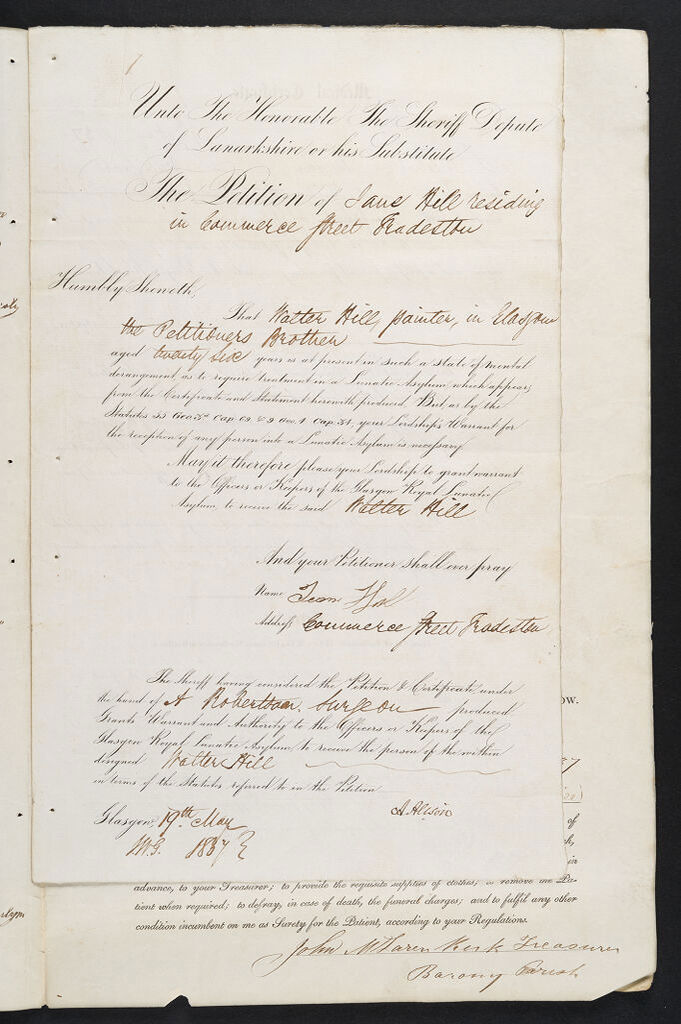 Unto The Honorable The Sheriff Depute
of Lanarkshire or his Substitute
The Petition of Jane Hill residing
in Commerce Street Tradeston
Humbly Sheweth,
That Walter Hill, painter, in Glasgow
the Petitioners Brother
aged twenty six years is at present in such a State of mental
derangement as to require treatment in a Lunatic Asylum which appears
from the Certificate and Statement herewith produced But, as by the
Statutes 55 Geo. 3d Cap. 69 & 9 Geo. 4 Cap. 34, your Lordship's Warrant for
the reception of any person into a Lunatic Asylum is necessary
May it therefore please your Lordship to grant warrant
to the Officers or Keepers of the Glasgow Royal Lunatic
Asylum, to receive the said Walter Hill
And your Petitioner shall ever pray
Name Jean Hill
Address Commerce Street Tradeston
The Sheriff having considered the Petition & Certificate under
the hand of A Robertson Surgeon produced
Grants Warrant and Authority to the Officers or Keepers of the
Glasgow Royal Lunatic Asylum to receive the person of the within
designed Walter Hill
in terms of the Statutes referred to in the Petition
A. Alison
Glasgow, 19th May
1837
OW.
of
in
advance, to your Treasurer; to provide the requisite supplies of clothes; to remove the Pa-
tient when required; to defray, in case of death, the funeral charges; and to fulfil any other
condition incumbent on me as Surety for the Patient, according to your Regulations.
John McLaren Kirk Treasurer
Barony Parish